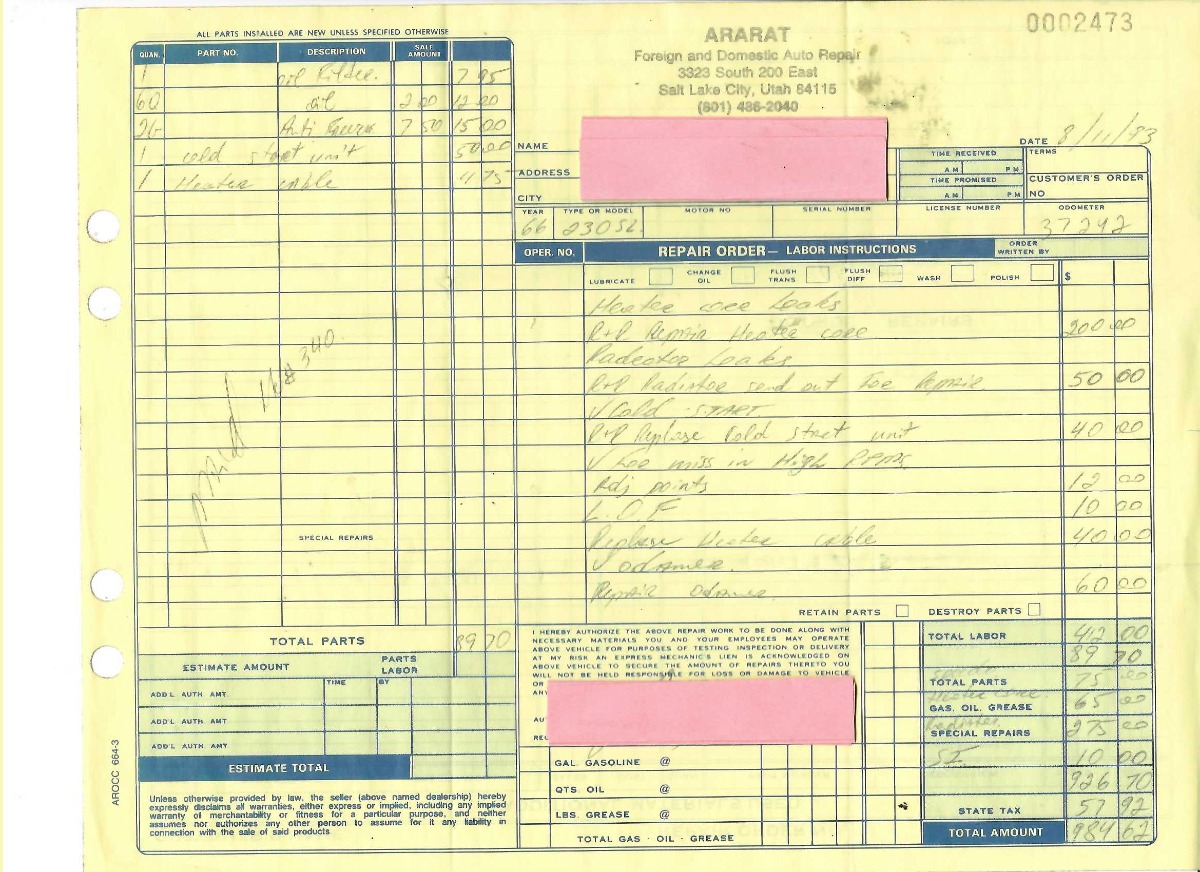 0002473
ARARAT
Foreign and Domestic Auto Repair
3323 South 200 East
Salt Lake City, Utah 84115
(801) 486-2040
ALL PARTS INSTALLED ARE NEW UNLESS SPECIFIED OTHERWISE
QUAN. PART NO. DESCRIPTION SALE AMOUNT
1 oil Filter. 7 95
6Q oil 2 00 12 00
2G Anti Freeze 7 50 15 00
1 cold start unit 50 00
1 Heater cable 4 75
SPECIAL REPAIRS
TOTAL PARTS 89 70
ESTIMATE AMOUNT PARTS LABOR
TIME BY
ADD'L AUTH. AMT.
ADD'L AUTH. AMT.
ADD'L AUTH. AMT
ESTIMATE TOTAL
Unless otherwise provided by law, the seller (above named dealership) hereby
expressly disclaims all warranties, either express or implied, including any implied
warranty of merchantability or fitness for a particular purpose, and neither
assumes nor authorizes any other person to assume for it any liability in
connection with the sale of said products.
AROCC 664-3
DATE 8/11/93
NAME
ADDRESS
CITY
TIME RECEIVED
A M P M
TIME PROMISED
A M P M
TERMS
CUSTOMER'S ORDER
NO
YEAR TYPE OR MODEL MOTOR NO SERIAL NUMBER LICENSE NUMBER ODOMETER
66 230SL. 37242
OPER. NO. REPAIR ORDER— LABOR INSTRUCTIONS ORDER WRITTEN BY
LUBRICATE CHANGE OIL FLUSH TRANS FLUSH DIFF WASH POLISH $
Heater core Leaks
R+R Repair Heater core 200 00
Radector Leaks
R+R Radistor send out For Repair. 50 00
√ Cold START
R+R Replase Cold Start unit 40 00
√ For miss in High RPMs
Adj points 12 00
L.O.F 10 00
Replase Heater cable 40 00
√ odamer.
Repair odamer. 60 00
RETAIN PARTS DESTROY PARTS
I HEREBY AUTHORIZE THE ABOVE REPAIR WORK TO BE DONE ALONG WITH
NECESSARY MATERIALS YOU AND YOUR EMPLOYEES MAY OPERATE
ABOVE VEHICLE FOR PURPOSES OF TESTING INSPECTION OR DELIVERY
AT MY RISK AN EXPRESS MECHANIC'S LIEN IS ACKNOWLEDGED ON
ABOVE VEHICLE TO SECURE THE AMOUNT OF REPAIRS THERETO YOU
WILL NOT BE HELD RESPONSIBLE FOR LOSS OR DAMAGE TO VEHICLE
OR
GAL. GASOLINE @
QTS. OIL @
LBS. GREASE @
TOTAL GAS - OIL - GREASE
TOTAL LABOR 412 00
89 70
TOTAL PARTS 75 00
Heater core
GAS. OIL. GREASE 65 00
Radister
SPECIAL REPAIRS 275 00
10 00
926 70
STATE TAX 57 92
TOTAL AMOUNT 984 62